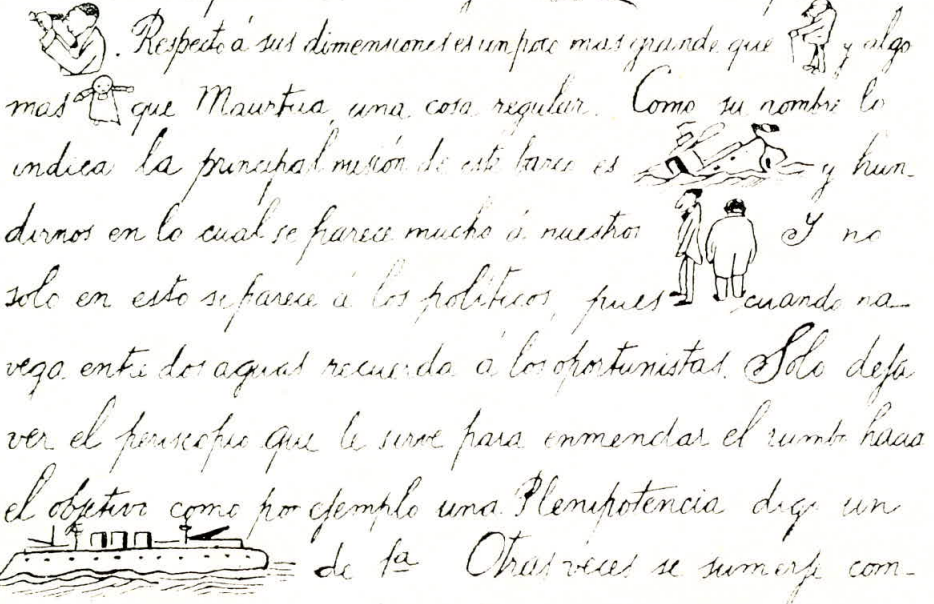 . Respecto á sus dimensiones es un poco mas grande que y algo
mas que Maurtua, una cosa regular. Como su nombre lo
indica la principal misión de este barco es y hun-
dirnos en lo cual se parece mucho á nuestros Y no
solo en esto se parece á los políticos, pues cuando na-
vega entre dos aguas recuerda á los oportunistas. Solo deja
ver el periscopio que le sirve para enmendar el rumbo hacia
el objetivo como por ejemplo una Plenipotencia digo un
de 1ª Otras veces se sumerje com-